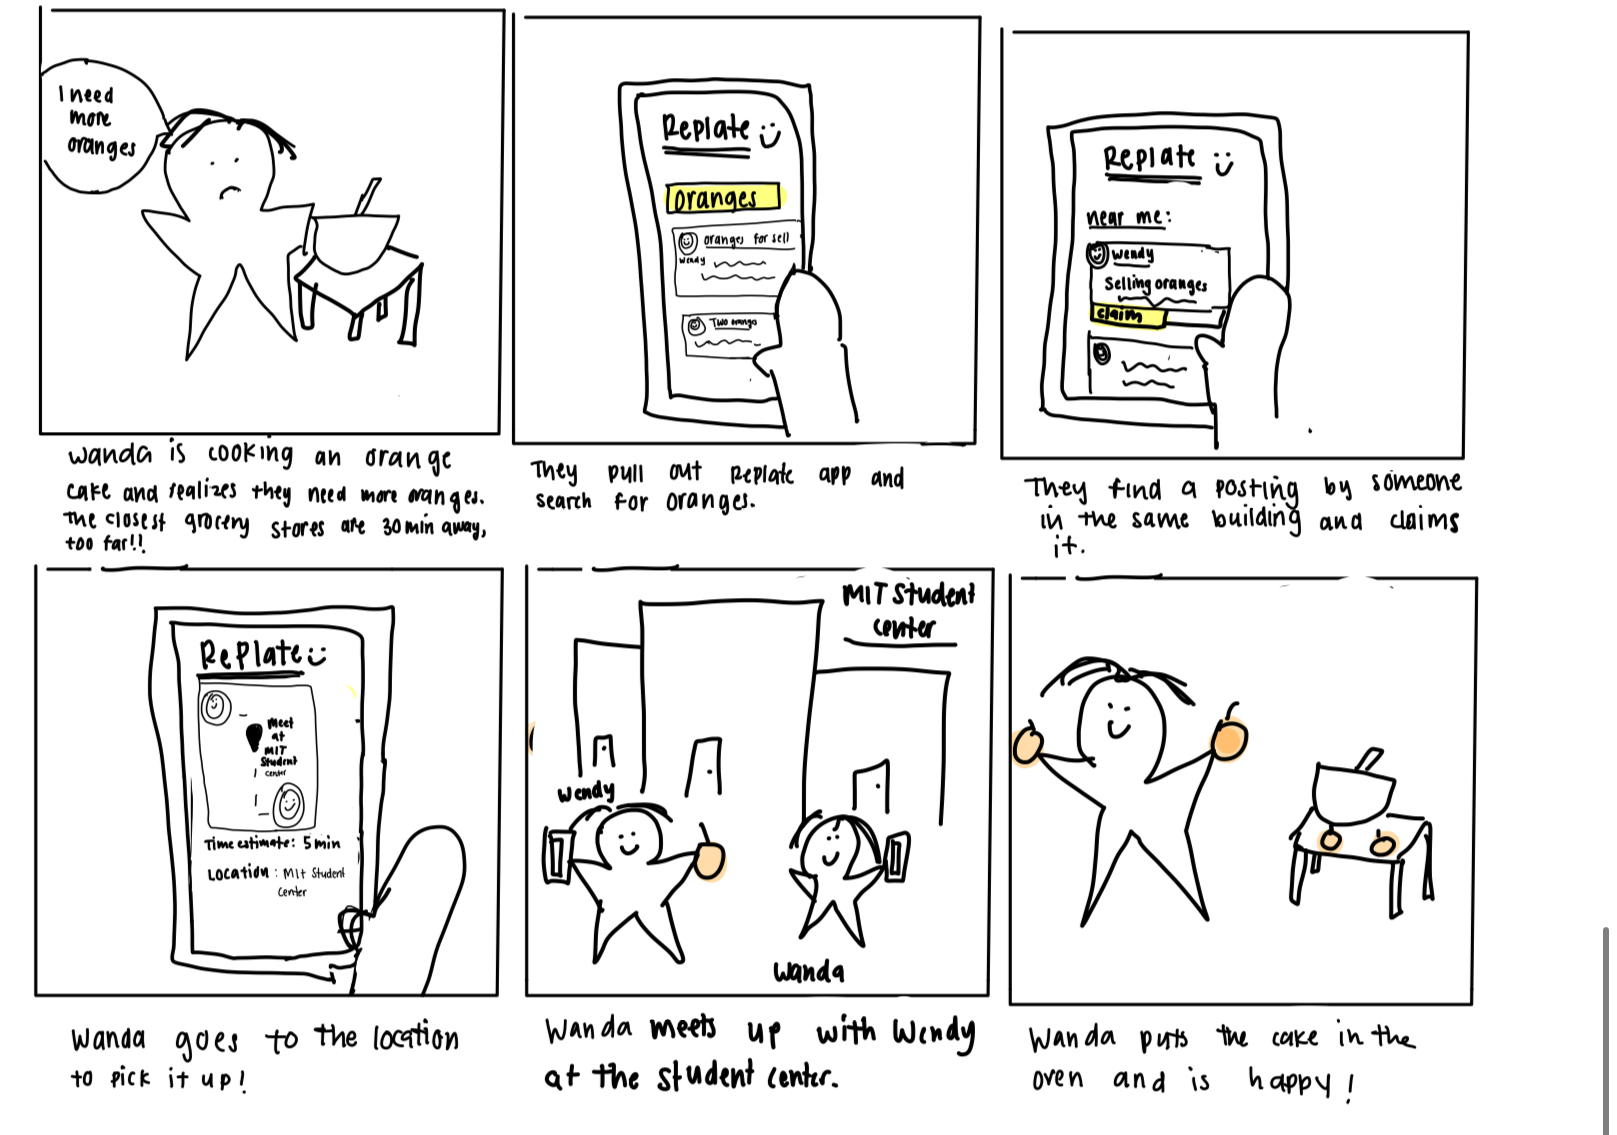 I need
more
oranges
Wanda is cooking an orange
cake and realizes they need more oranges.
The closest grocery stores are 30 min away,
too far!!
Replate
oranges
oranges for sell
Wendy
Two oranges
They pull out Replate app and
search for oranges.
Replate
near me:
Wendy
Selling oranges
claim
They find a posting by someone
in the same building and claims
it.
RePlate
Meet
at
MIT
Student
center
Time estimate: 5 min
Location: MIt Student
Center
Wanda goes to the location
to pick it up!
MIT Student
center
Wendy
Wanda
Wanda meets up with Wendy
at the student center.
Wanda puts the cake in the
oven and is happy!